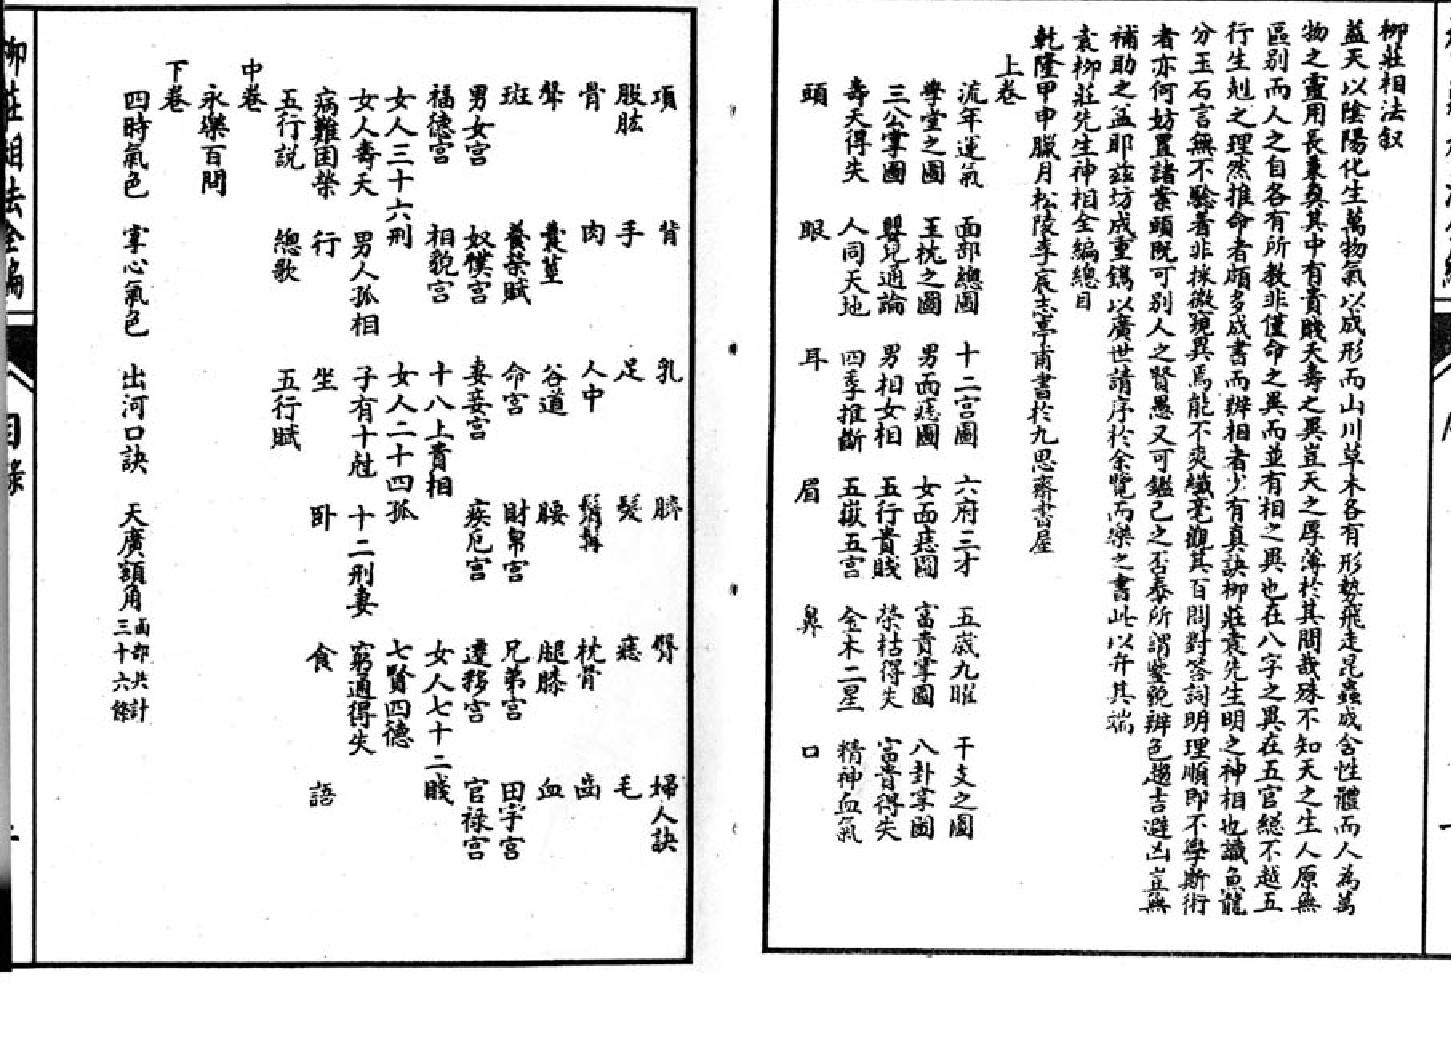 柳莊相法叙
蓋天以陰陽化生萬物氣以成形而山川草木各有形勢飛走昆蟲咸含性體而人為萬
物之靈用長秉奐其中有貴賤夭壽之異豈天之厚薄於其間哉殊不知天之生人原無
區別而人之自各有所教非僅命之異而並有相之異也在八字之異在五官總不越五
行生剋之理然推命者頗多成書而辦相者少有真訣柳莊袁先生明之神相也識魚龍
分玉石言無不驗著非採微窺異焉能不爽纖毫觀其百問對答詞明理順即不學斷術
者亦何妨置諸案頭既可別人之賢愚又可鑑己之否泰所謂鑒貌辨色趨吉避凶豈無
補助之益耶兹坊成重鐫以廣世請序於余覽而樂之書此以弁其端
袁柳莊先生神相全編總目
乾隆甲申臘月松陵李宸志亭甫書於九思齋書屋
上卷
流年運氣 面部總圖 十二宮圖 六府三才 五嶽九曜 干支之圖
學堂之圖 玉枕之圖 男面痣圖 女面痣圖 富貴掌圖 八卦掌圖
三公掌圖 嬰兒通論 男相女相 五行貴賤 榮枯得失 富貴得失
壽夭得失 人同天地 四季推斷 五嶽五官 金木二星 精神血氣
頭 眼 耳 眉 鼻 口
項 背 乳 臍 臀 婦人訣
股肱 手 足 髮 痣 毛
骨 肉 人中 鬍鬚 枕骨 齒
聲 囊莖 谷道 腰 腿膝 血
斑 養榮賦 命宮 財帛宮 兄弟宮 田宇宮
男女宮 奴僕宮 妻妾宮 疾厄宮 遷移宮 官祿宮
福德宮 相貌宮 十八上貴相 女人七十二賤
女人三十六刑 女人二十四孤 七賢四德
女人壽夭 男人孤相 子有十尅 十二刑妻 窮通得失
病難困榮 行 坐 卧 食 語
五行説 總歌 五行賦
中卷
永樂百問
下卷
四時氣色 掌心氣色 出河口訣 天廣額角 面部共計三十六條
柳莊相法全編
目錄